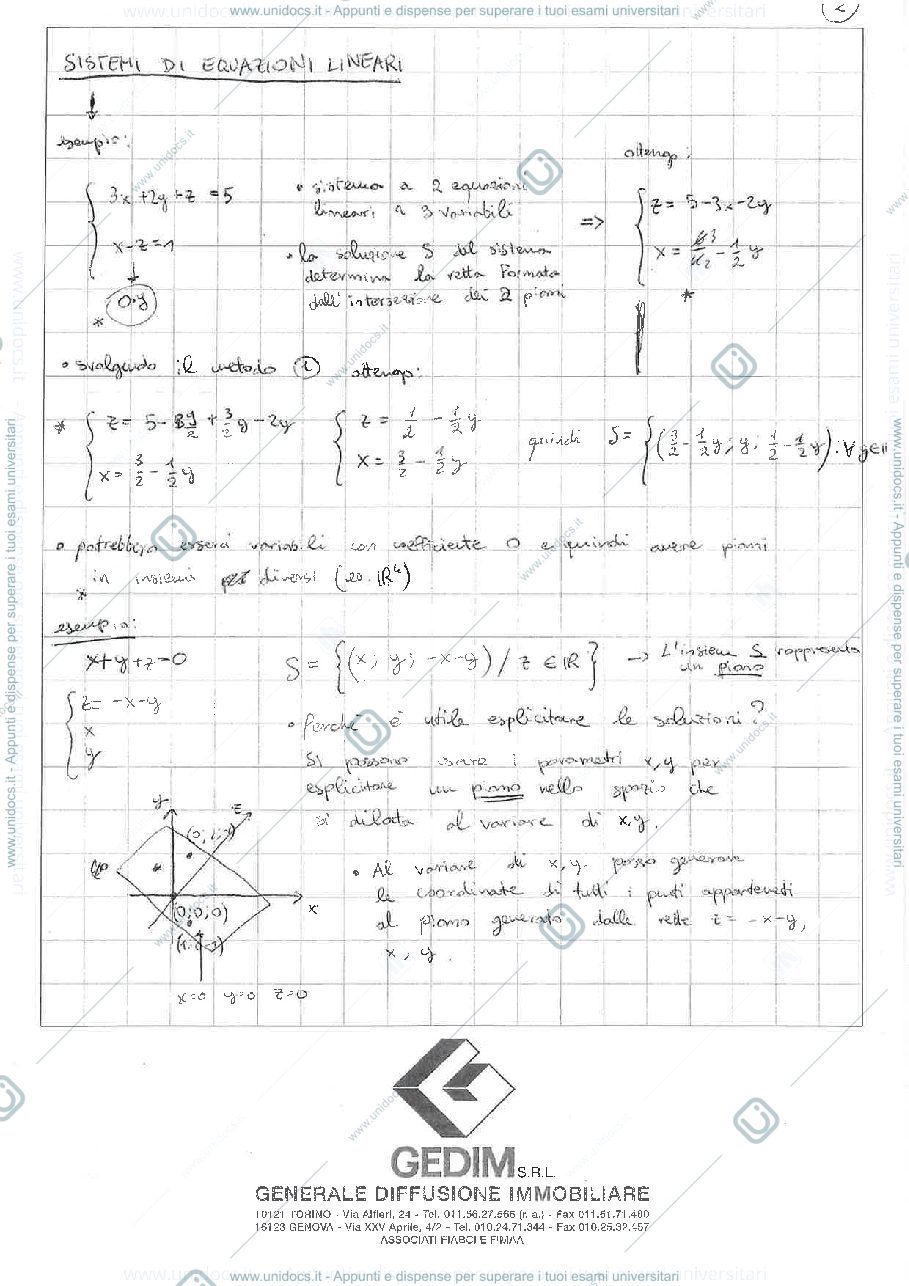 www.unidocs.it - Appunti e dispense per superare i tuoi esami universitari
2
SISTEMI DI EQUAZIONI LINEARI
esempio:
3x + 2y + z = 5
x - z = 1
0·y
*
• sistema a 2 equazioni
lineari a 3 variabili
• la soluzione S del sistema
determina la retta formata
dall'intersezione dei 2 piani
=>
ottengo:
z = 5 - 3x - 2y
x = 3/2 - 1/2 y
*
• svolgendo il metodo 1 ottengo:
* z = 5 - 9/2 + 3/2 y - 2y
x = 3/2 - 1/2 y
z = 1/2 - 1/2 y
x = 3/2 - 1/2 y
quindi S = {(3/2 - 1/2 y; y; 1/2 - 1/2 y). ∀ y ∈
• potrebbero esserci variabili con coefficiente 0 e quindi avere piani
* in insiemi diversi (es. IR⁴)
esempio:
x + y + z = 0
z = -x-y
x
y
S = {(x; y; -x-y) / z ∈ IR} → L'insieme S rappresenta
un piano
• Perché è utile esplicitare le soluzioni?
Si possono usare i parametri x, y per
esplicitare un piano nello spazio che
si dilata al variare di x, y.
• Al variare di x, y. posso generare
le coordinate di tutti i punti appartenenti
al piano generato dalle rette z = -x-y,
x, y.
y
z
x
(0;0;0)
x=0 y=0 z=0
GEDIM S.R.L.
GENERALE DIFFUSIONE IMMOBILIARE
10121 TORINO - Via Alfieri, 24 - Tel. 011.56.27.566 (r. a.) - Fax 011.51.71.480
16123 GENOVA - Via XXV Aprile, 4/2 - Tel. 010.24.71.344 - Fax 010.25.32.457
ASSOCIATI FIABCI E FIMAA
www.unidocs.it - Appunti e dispense per superare i tuoi esami universitari